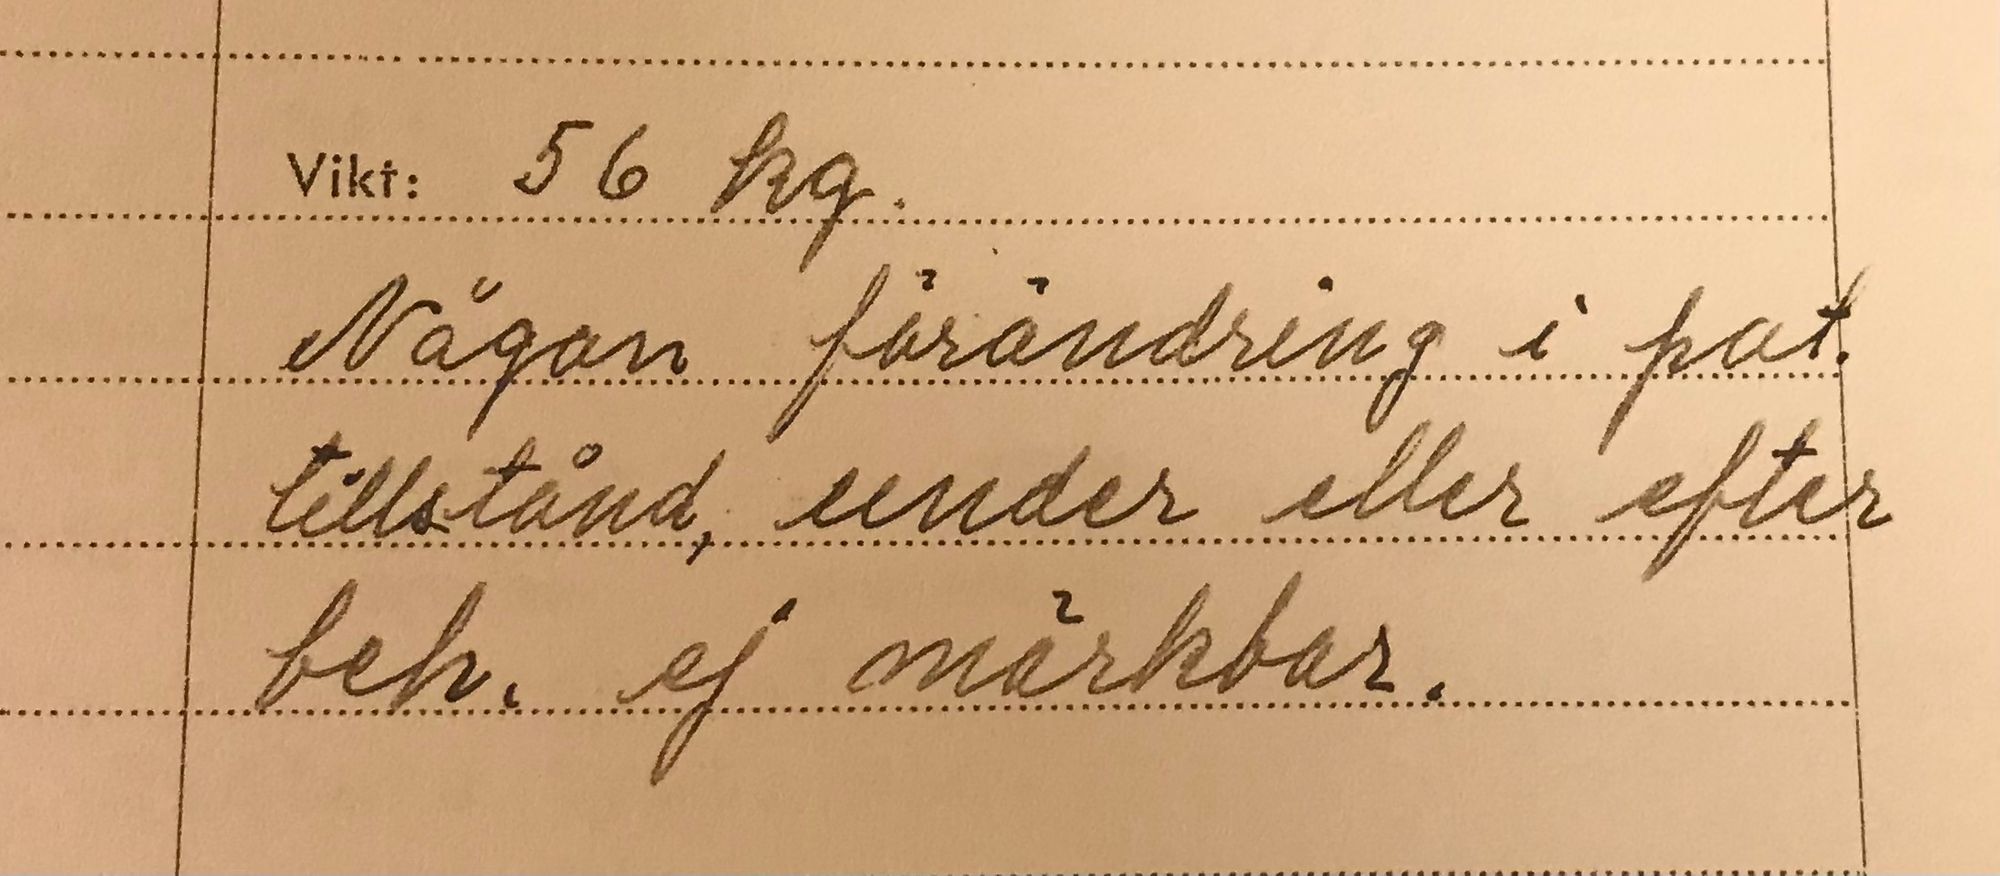 Vikt: 56 kg.
Någon förändring i pat.
tillstånd, under eller efter
beh. ej märkbar.